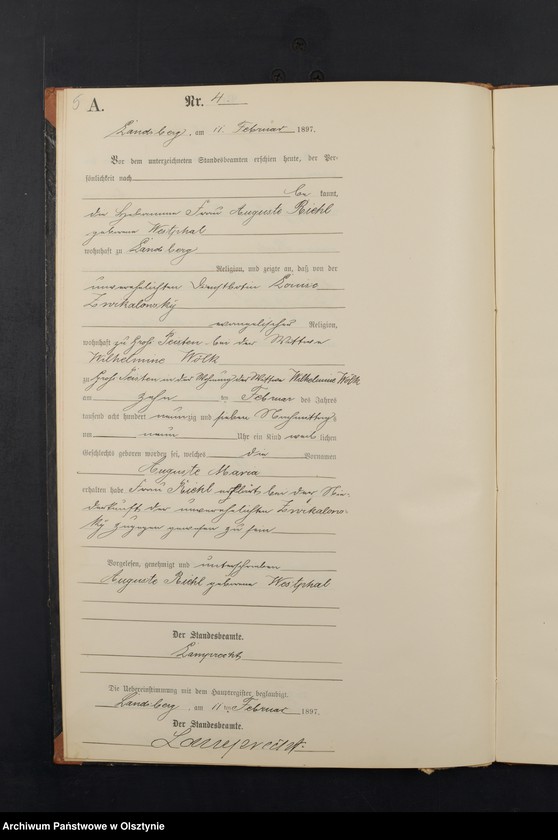 5 A. Nr. 4
Landsberg, am 11 Februar 1897.
Vor dem unterzeichneten Standesbeamten erschien heute, der Per-
sönlichkeit nach
be kannt,
die Hebamme Frau Auguste Riehl
geborene Westphal
wohnhaft zu Landsberg
Religion, und zeigte an, daß von der
unverehelichten Dienstbotin Louise
Zwikalowsky
evangelischer Religion,
wohnhaft zu Groß Peisten bei der Wittwe
Wilhelmine Wölk
zu Groß Peisten in der Wohnung der Wittwe Wilhelmine Wölk
am zehn ten Februar des Jahres
tausend acht hundert neunzig und sieben Nachmittags
um neun Uhr ein Kind weib lichen
Geschlechts geboren worden sei, welches die Vornamen
Auguste Maria
erhalten habe Frau Riehl erklärt bei der Nie-
derkunft der unverehelichten Zwikalow-
sky zugegen gewesen zu sein
Vorgelesen, genehmigt und unterschrieben
Auguste Riehl geborene Westphal
Der Standesbeamte.
Lamprecht
Die Uebereinstimmung mit dem Hauptregister beglaubigt.
Landsberg, am 11 ten Februar 1897.
Der Standesbeamte.
Lamprecht.
Archiwum Państwowe w Olsztynie